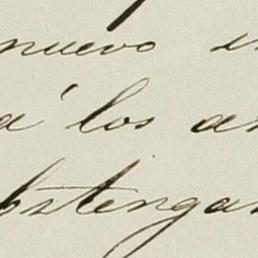 nuevo
á los
bstengas